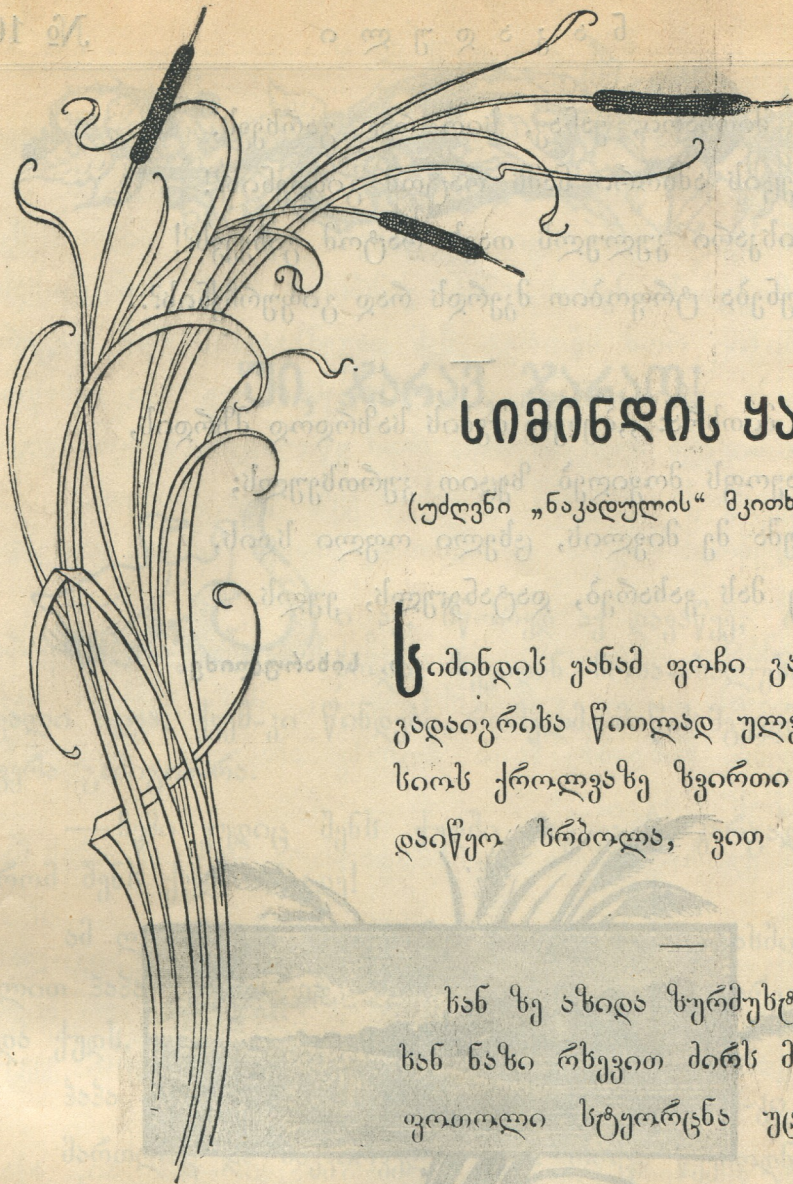 სიმინდის ყა
(უძღვნი „ნაკადულის“ მკითხ
სიმინდის ყანამ ფოჩი გა
გადაიგრიხა წითლად ულვ
სიოს ქროლვაზე ზვირთი
დაიწყო სრბოლა, ვით
ხან ზე აზიდა ზურმუხტ
ხან ნაზი რხევით ძირს მ
ფოთოლი სტყორცნა უც